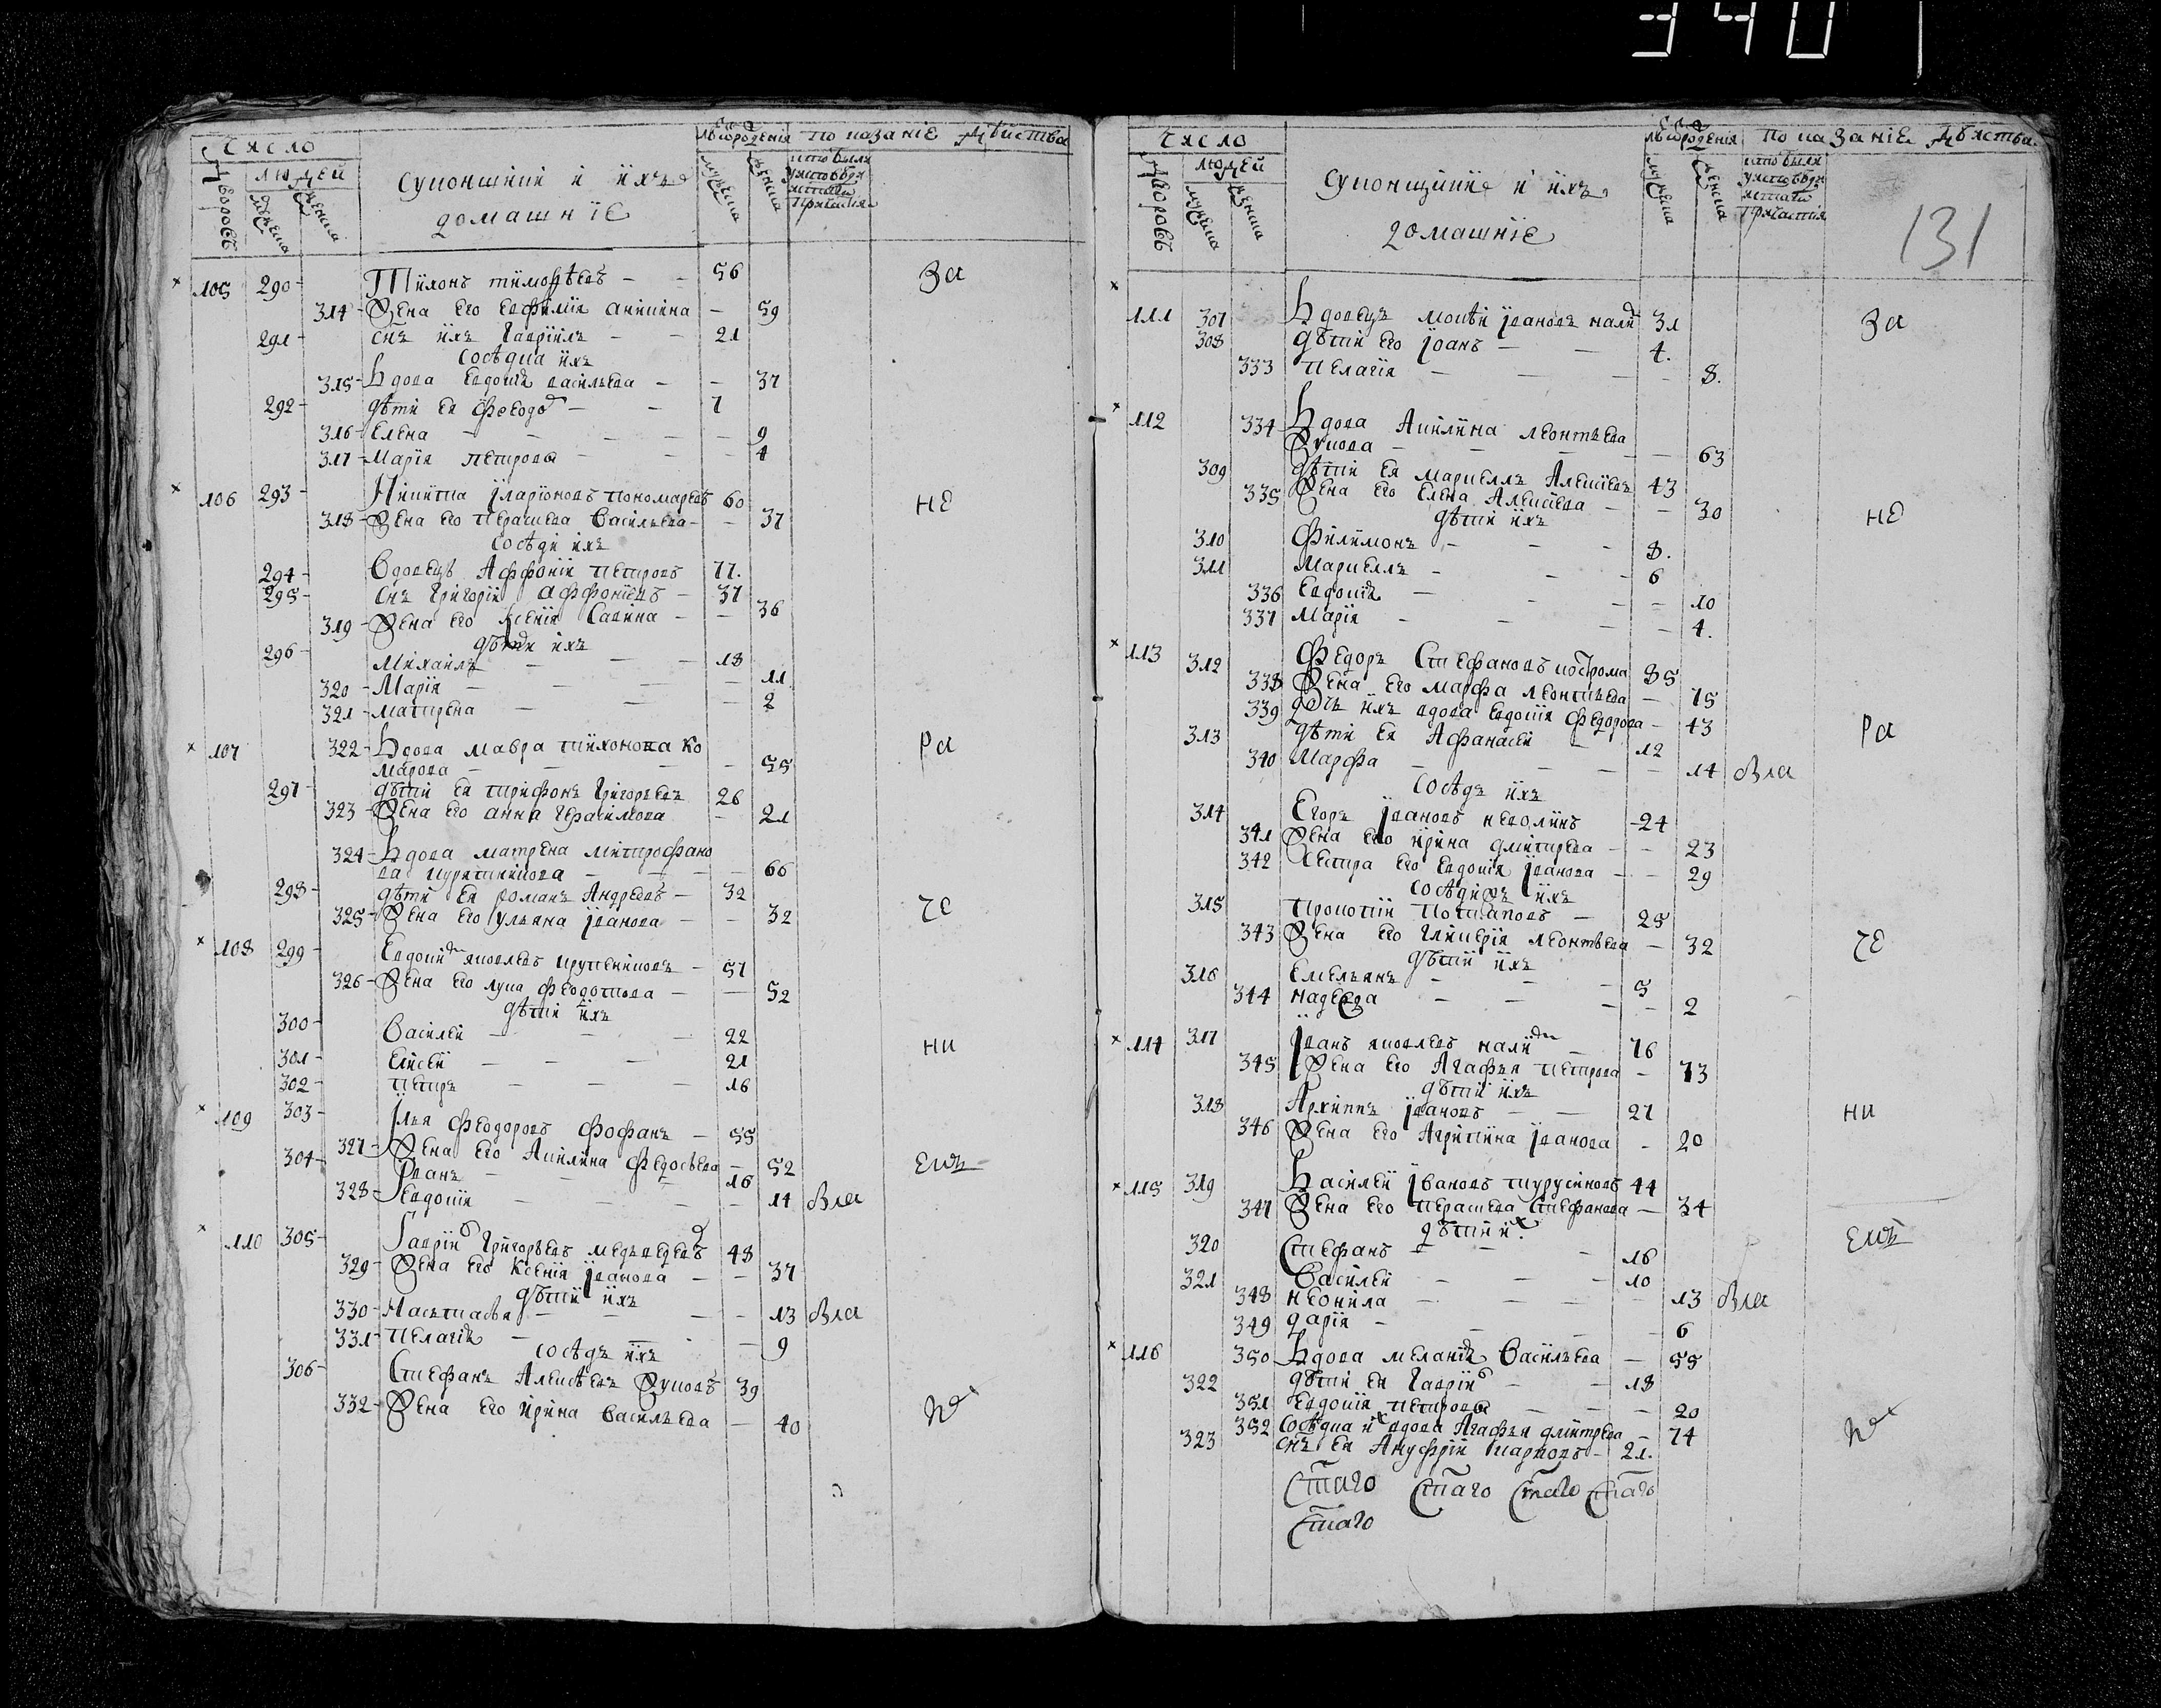 340
число
Дворовъ
людей
мужеска
женска
Супонщики и ихъ
домашнїе
лѣта от рожденїя
мужеска
женска
показанїе дѣйства
кто были
у исповѣди
и святаго
причастїя
105 290 Тихонъ тимофѣевъ 56 За
314 Жена его евфимїя аникина 59
291 снъ ихъ гаврїилъ 21
сосѣдка ихъ
315 Вдова евдокїя васильева 37
292 дѣти ея феодо 7
316 Елена 9
317 Марїя петрова 4
106 293 Никита їларїоновъ пономаревъ 60 не
318 Жена его перасκева васильева 37
сосѣди ихъ
294 вдовецъ Аффонїи петровъ 77.
295 снъ григорїи аффонїевъ 37
319 Жена его ксенїя Савина 36
дѣти ихъ
296 Михаилъ 18
320 Марїя 11
321 матрена 2
107 322 Вдова мавра тихонова ко ра
марова 55
297 дѣти ея трифонъ григорьевъ 26
323 Жена его анна герасимова 21
324 Вдова матрена митрофано
ва 66
298 дѣти ея романъ Андреевъ 32
325 Жена его ульяна їванова 32 че
108 299 Евдоки яковлевъ 57
326 Жена его лука феодотова 52
дѣти ихъ
300 Василеи 22 ни
301 Елисеи 21
302 петръ 16
109 303 Їлья феодоровъ фофанъ 55
327 Жена его Акилина федосѣева 52 ежъ
304 їванъ 16
328 евдокїя 14 вла
110 305 Гаврїи григорьевъ медведевъ 48
329 Жена его ксенїя їванова 37
дѣти ихъ
330 Настасья 13 вла
331 пелагїя 9
сосѣдъ ихъ
306 Стефанъ Алексѣевъ Жуковъ 39
332 Жена его ирина васильева 40
число
Дворовъ
людей
мужеска
женска
Супонщики и ихъ
домашнїе
лѣта от рожденїя
мужеска
женска
показанїе дѣйства
кто были
у исповѣди
и святаго
причастїя
131
111 307 Вдовецъ мокѣи ївановъ 31 За
308 дѣти его їоанъ 4.
333 пелагїя 8.
112 334 Вдова Акилина леонтьева
Жукова 63
309 дѣти ея маркеллъ Алексїевъ 43
335 Жена его елена Алексїева 30 не
дѣти ихъ
310 Филимонъ 8.
311 маркеллъ 6
336 Евдокїя 10
337 марїя 4.
113 312 Федоръ Стефановъ кострома 85
338 Жена его марфа леонтьева 75
339 дочь ихъ вдова евдокїя федорова 43
313 дѣти ея Афанасеи 12 ра
340 марфа 14 вла
сосѣдъ ихъ
314 Егоръ ївановъ неволинъ 24
341 Жена его ирина дмитрева 23
342 Сестра его евдокїя їванова 29
сосѣди ихъ
315 прокопїи потаповъ 25
343 Жена его гликерїя леонтьева 32 че
дѣти ихъ
316 Емельянъ 5
344 надежда 2
114 317 їванъ яковлевъ 76
345 Жена его Агафья петрова 73
дѣти ихъ
318 Архиппъ ївановъ 27 ни
346 Жена его Агрипина їванова 20
115 319 Василеи ївановъ 44
347 Жена его перасκева стефанова 34
дѣти их
320 Стефанъ 16 ежъ
321 Василеи 10
348 неонила 13 вла
349 дарїя 6
116 350 Вдова меланїя васильева 55
322 дѣти ея гаврїи 18
351 евдокїя петрова 20
352 сосѣдка их вдова Агафья дмитрева 74
323 снъ ея Ануфрїи карповъ 21.
Стаго Стаго Стаго Стаго
Стаго